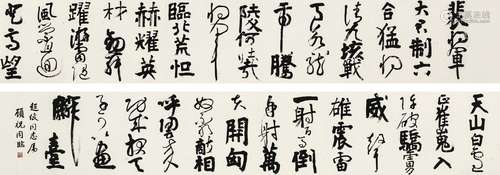 裴将軍
大君制六
合猛将
清九垓戰
馬若龍
虎騰
陵何壮哉
将軍
臨北荒恒
赫耀英
材劒舞
躍游雷隨
風縈且迴
登高望
天山白雲正
崔嵬入
陣破驕虜
威聲
雄震雷
一射百馬倒
再射萬
夫開匈
奴不敢敵相
呼歸去来
功成報天
子可以畫
麟臺
同志属
顧祝同臨